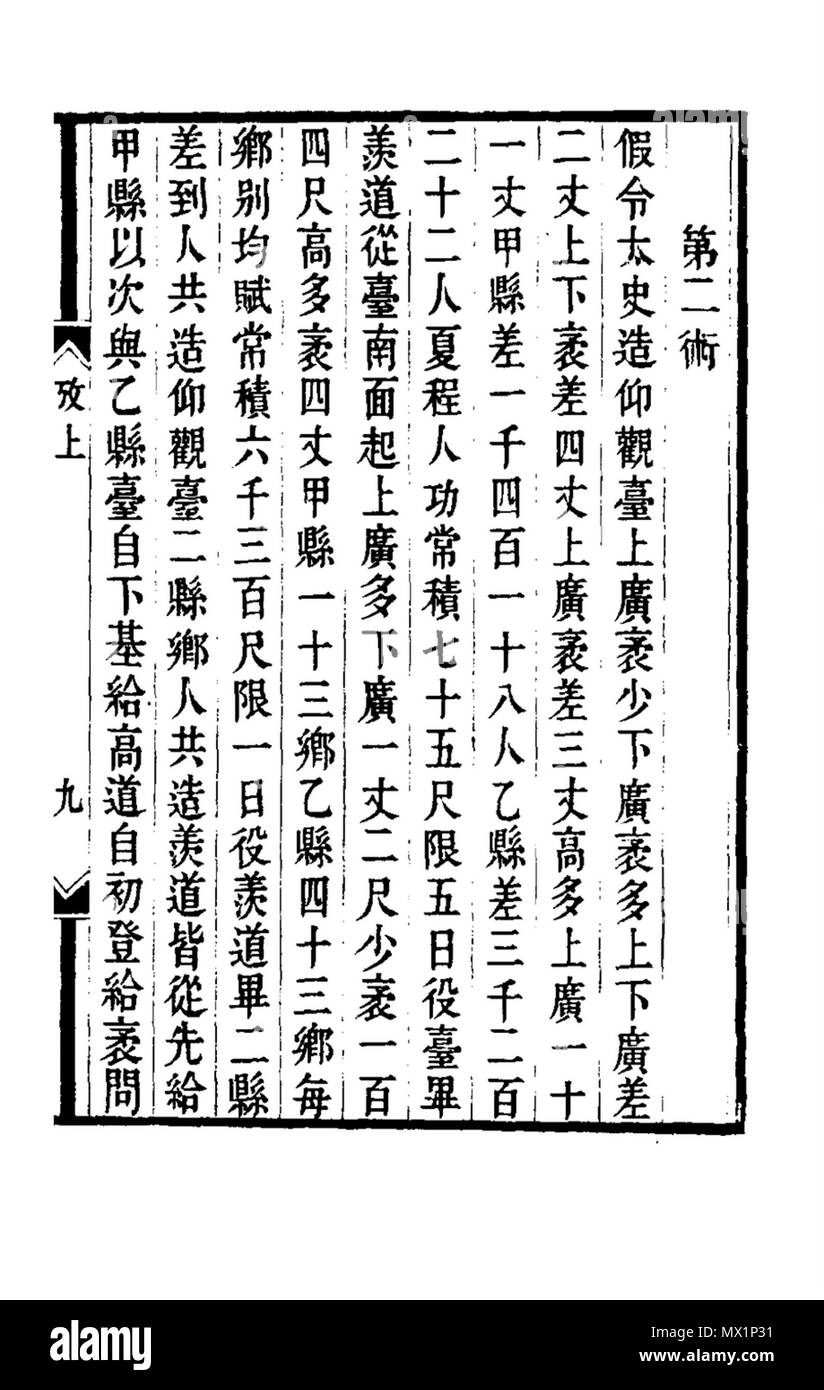 第二術
假令太史造仰觀臺上廣袤少下廣袤多上下廣差
二丈上下袤差四丈上廣袤差三丈高多上廣一十
一丈甲縣差一千四百一十八人乙縣差三千二百
二十二人夏程人功常積七十五尺限五日役臺畢
羨道從臺南面起上廣多下廣一丈二尺少袤一百
四尺高多袤四丈甲縣一十三鄉乙縣四十三鄉每
鄉別均賦常積六千三百尺限一日役羨道畢二縣
差到人共造仰觀臺二縣鄉人共造羨道皆從先給
甲縣以次與乙縣臺自下基給高道自初登給袤問
攷上 九
alamy
Image ID: MX1P31
www.alamy.com